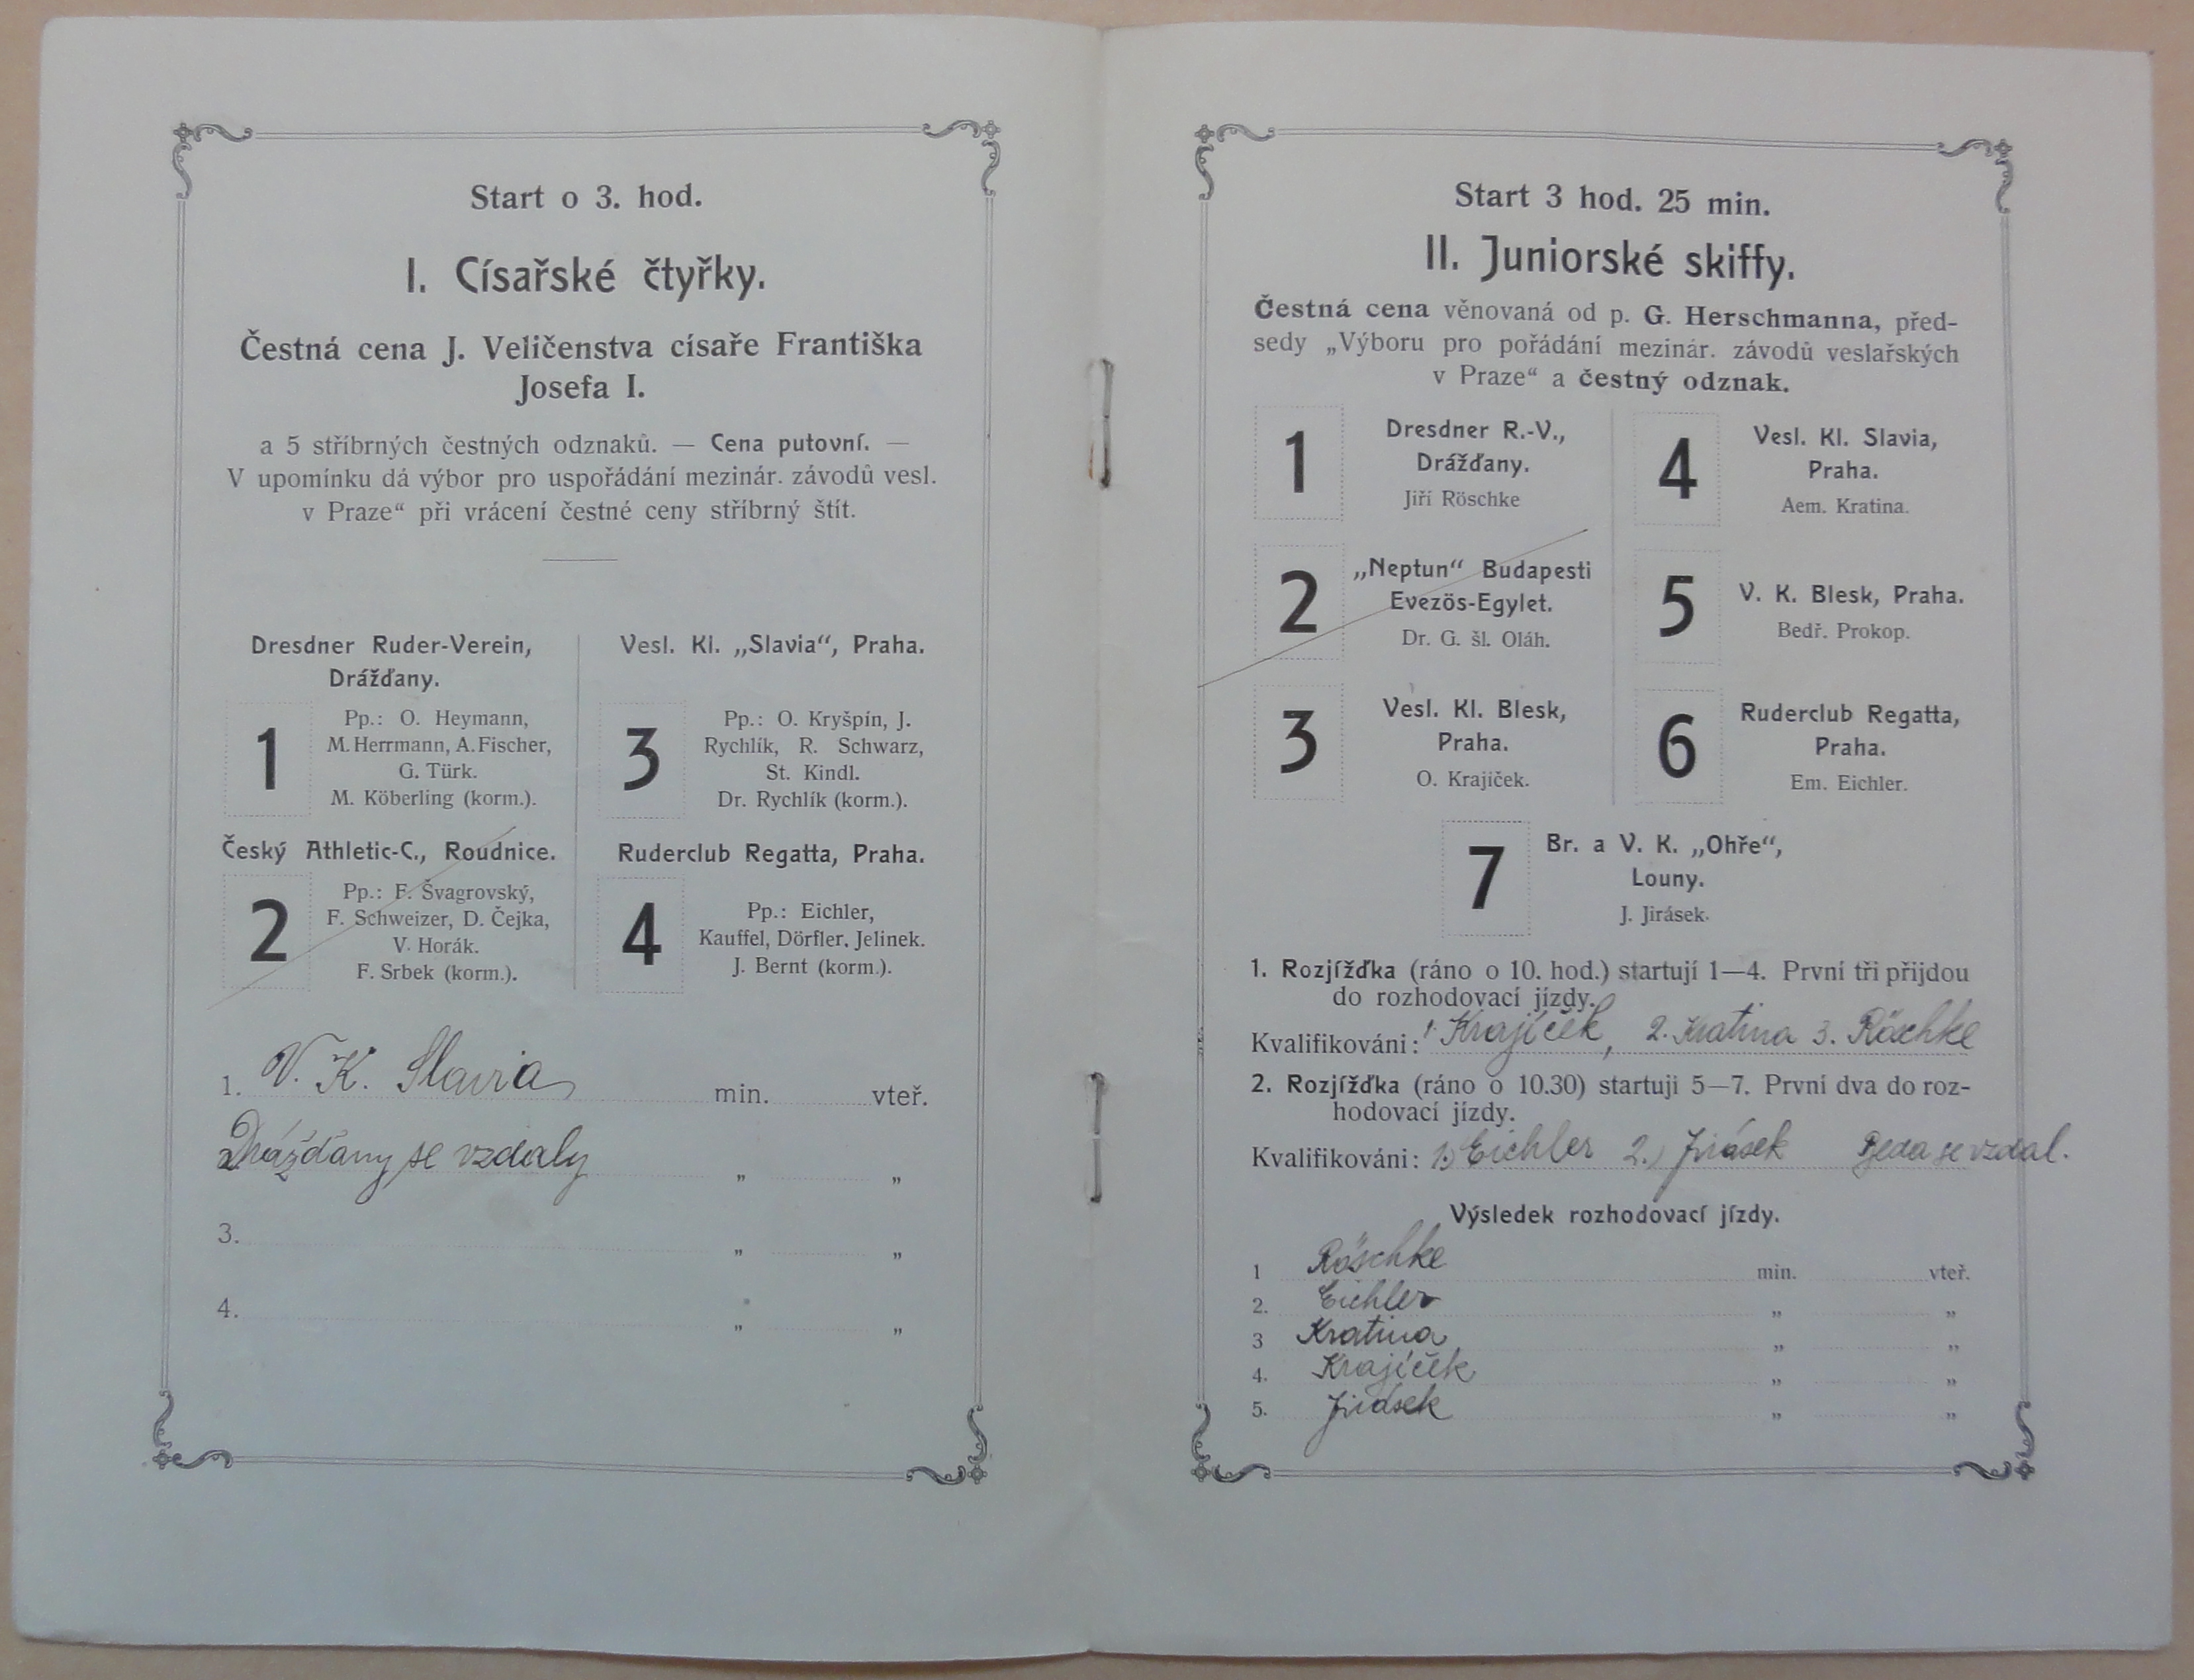 Start o 3. hod.
I. Císařské čtyřky.
Čestná cena J. Veličenstva císaře Františka
Josefa I.
a 5 stříbrných čestných odznaků. — Cena putovní. —
V upomínku dá výbor pro uspořádání mezinár. závodů vesl.
v Praze“ při vrácení čestné ceny stříbrný štít.
Dresdner Ruder-Verein,
Drážďany.
1
Pp.: O. Heymann,
M. Herrmann, A. Fischer,
G. Türk.
M. Köberling (korm.).
Český Athletic-C., Roudnice.
2
Pp.: F. Švagrovský,
F. Schweizer, D. Čejka,
V. Horák.
F. Srbek (korm.).
Vesl. Kl. „Slavia“, Praha.
3
Pp.: O. Kryšpín, J.
Rychlík, R. Schwarz,
St. Kindl.
Dr. Rychlík (korm.).
Ruderclub Regatta, Praha.
4
Pp.: Eichler,
Kauffel, Dörfler, Jelinek.
J. Bernt (korm.).
1. V. K. Slavia min. vteř.
Drážďany se vzdaly „ „
3. „ „
4. „ „
Start 3 hod. 25 min.
II. Juniorské skiffy.
Čestná cena věnovaná od p. G. Herschmanna, před-
sedy „Výboru pro pořádání mezinár. závodů veslařských
v Praze“ a čestný odznak.
1
Dresdner R.-V.,
Drážďany.
Jiří Röschke
2
„Neptun“ Budapesti
Evezös-Egylet.
Dr. G. šl. Oláh.
3
Vesl. Kl. Blesk,
Praha.
O. Krajíček.
4
Vesl. Kl. Slavia,
Praha.
Aem. Kratina.
5
V. K. Blesk, Praha.
Bedř. Prokop.
6
Ruderclub Regatta,
Praha.
Em. Eichler.
7
Br. a V. K. „Ohře“,
Louny.
J. Jirásek.
1. Rozjížďka (ráno o 10. hod.) startují 1—4. První tři přijdou
do rozhodovací jízdy.
Kvalifikováni: 1. Krajíček, 2. Kratina 3. Röschke
2. Rozjížďka (ráno o 10.30) startuji 5—7. První dva do roz-
hodovací jízdy.
Kvalifikováni: 1.) Eichler 2.) Jirásek se vzdal.
Výsledek rozhodovací jízdy.
1 Röschke min. vteř.
2. Eichler „ „
3 Kratina „ „
4. Krajíček „ „
5. Jirásek „ „